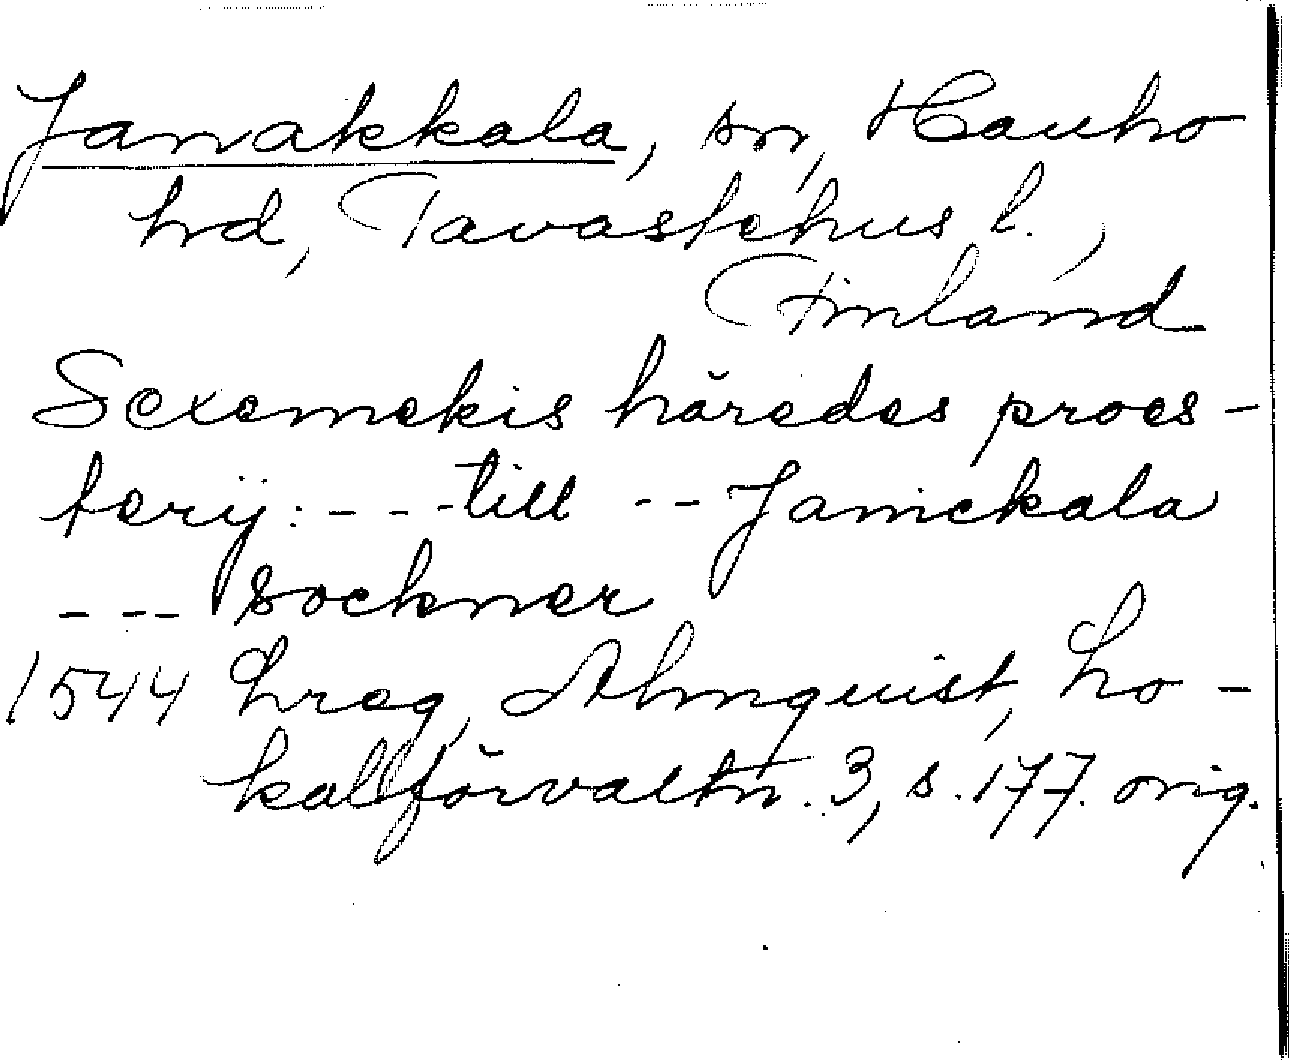 Janakkala, sn, Hauho
hd, Tavastehus l.,
Finland
Sexemekis häredes proes-
terij: - - - till - - Janickala
- - - sockner
1544 hreg, Almquist, Lo-
kalförvaltn. 3, s. 177. orig.